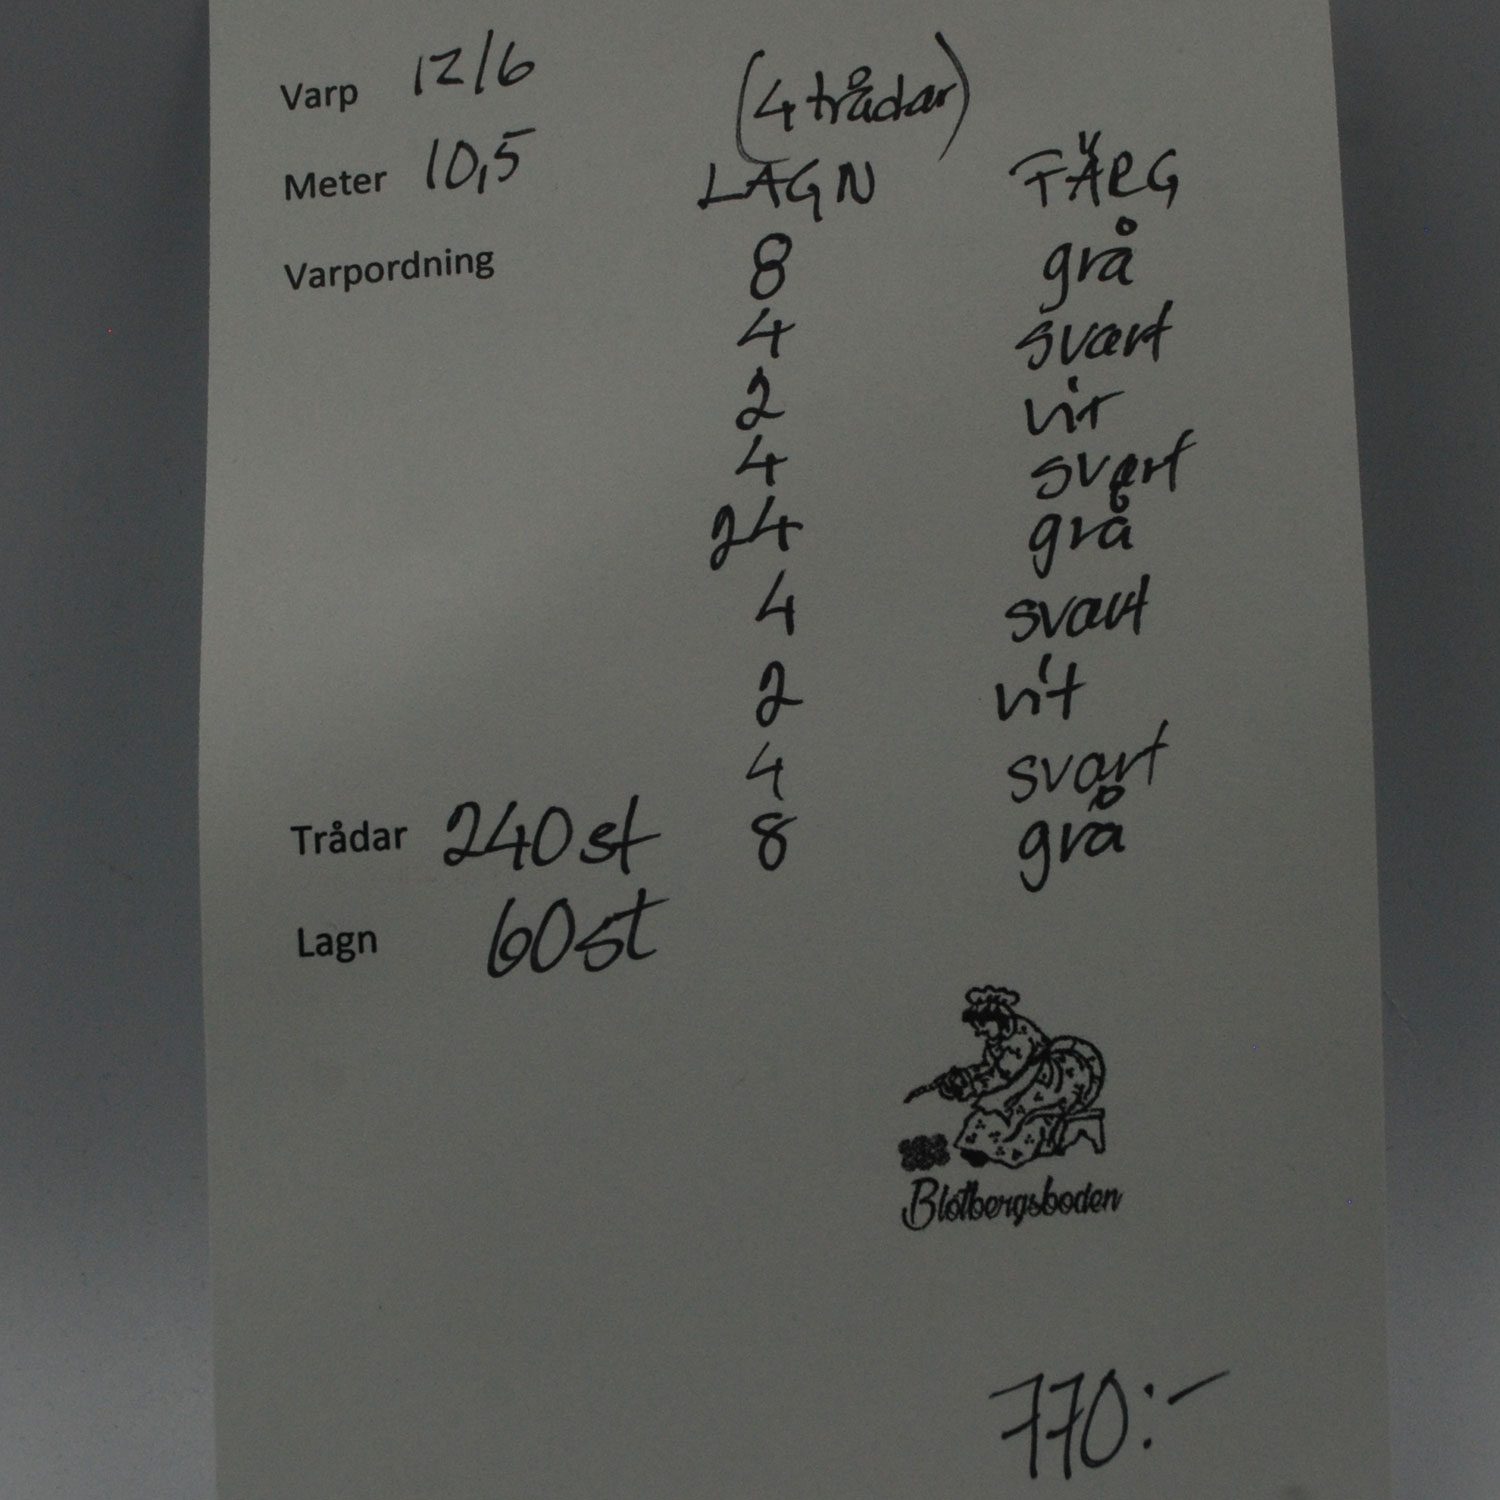 Varp 12/6 (4 trådar)
Meter 10,5 LAGN FÄRG
Varpordning 8 grå
4 svart
2 vit
4 svart
24 grå
4 svart
2 vit
4 svart
Trådar 240 st 8 grå
Lagn 60 st
Blotbergsboden
770:-